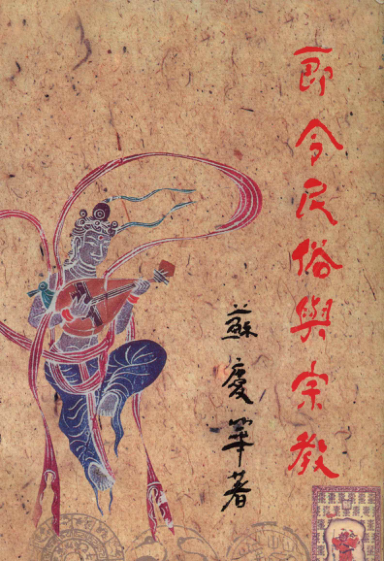 節令民俗與宗教
蘇慶華著